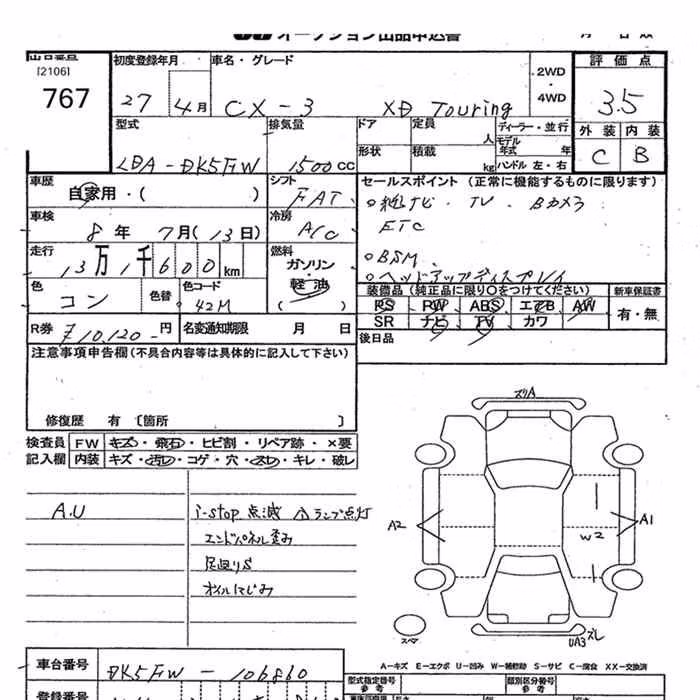 オークション出品申込書
出品番号 初度登録年月 車名・グレード 評価点
[2106]
767
27 4月 CX-3 XD Touring
2WD・4WD
3.5
外装 内装
C B
型式 排気量 ドア 定員 人 ディーラー・並行
LDA-DK5FW 1500cc
形状 積載 kg モデル年式 年
ハンドル 左・右
車歴 自家用・( ) シフト FAT
セールスポイント (正常に機能するものに限ります)
純ナビ・TV・Bカメラ
ETC
BSM
ヘッドアップディスプレイ
車検 8年 7月(13日) 冷房 A/C
走行 13万1千600km
燃料 ガソリン・軽油( )
色 コン 色替 色コード 42M
装備品 (純正品に限り○をつけてください) 新車保証書
PS PW ABS エアB AW 有・無
SR ナビ TV カワ
R券 ¥10,120-円 名変通知期限 月 日
後日品
注意事項申告欄(不具合内容等は具体的に記入して下さい)
修復歴 有 [箇所 ]
検査員記入欄 FW キズ・飛石・ヒビ割・リペア跡・×要
内装 キズ・汚レ・コゲ・穴・スレ・キレ・破レ
A.U
i-stop 点滅 ⚠ランプ点灯
エンドパネル歪み
足回りS
オイルにじみ
ズリA
A2
A1
W2
スペア
UA3 ズレ
A-キズ E-エクボ U-凹み W-補修跡 S-サビ C-腐食 XX-交換済
車台番号 DK5FW-106860
型式指定番号 参考 類別区分番号 参考
登録番号